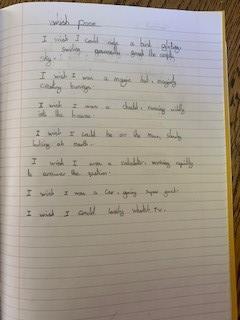 wish poem
I wish I could ride a bird, gliding,
swirling around the
sky.
I wish I was a magic hat, magicly
creating bunnys.
I wish I was a child, running wildly
into the house.
I wish I could be on the moon, slowly
looking at earth.
I wish I was a calculator, working rapidly
to answer the question.
I wish I was a car, going super fast.
I wish I could lazily watch TV.